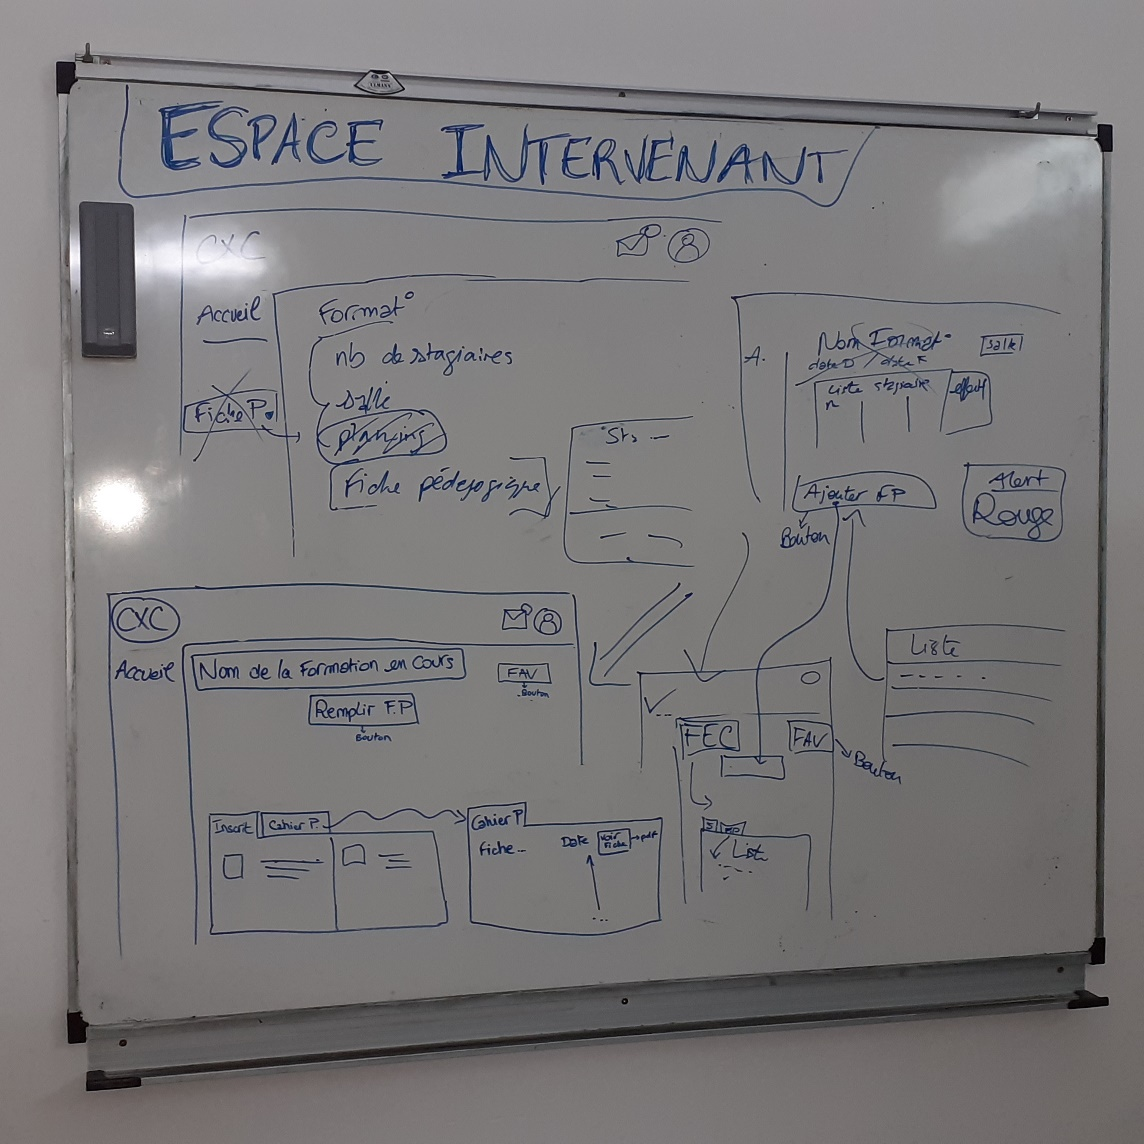 ESPACE INTERVENANT
CXC
Accueil
Format°
nb de stagiaires
salle
Fiche P.
planning
Fiche pédagogique
Sts
A.
Nom Format°
date D / date F
salle
Liste stagiaire
n
effectif
Ajouter FP
Bouton
Alert
Rouge
CXC
Accueil
Nom de la Formation en Cours
FAV
Bouton
Remplir F.P
Bouton
Inscrit
Cahier P.
Cahier P
Fiche...
Date
Voir Fiche
pdf
FEC
FAV
Bouton
Liste
Liste